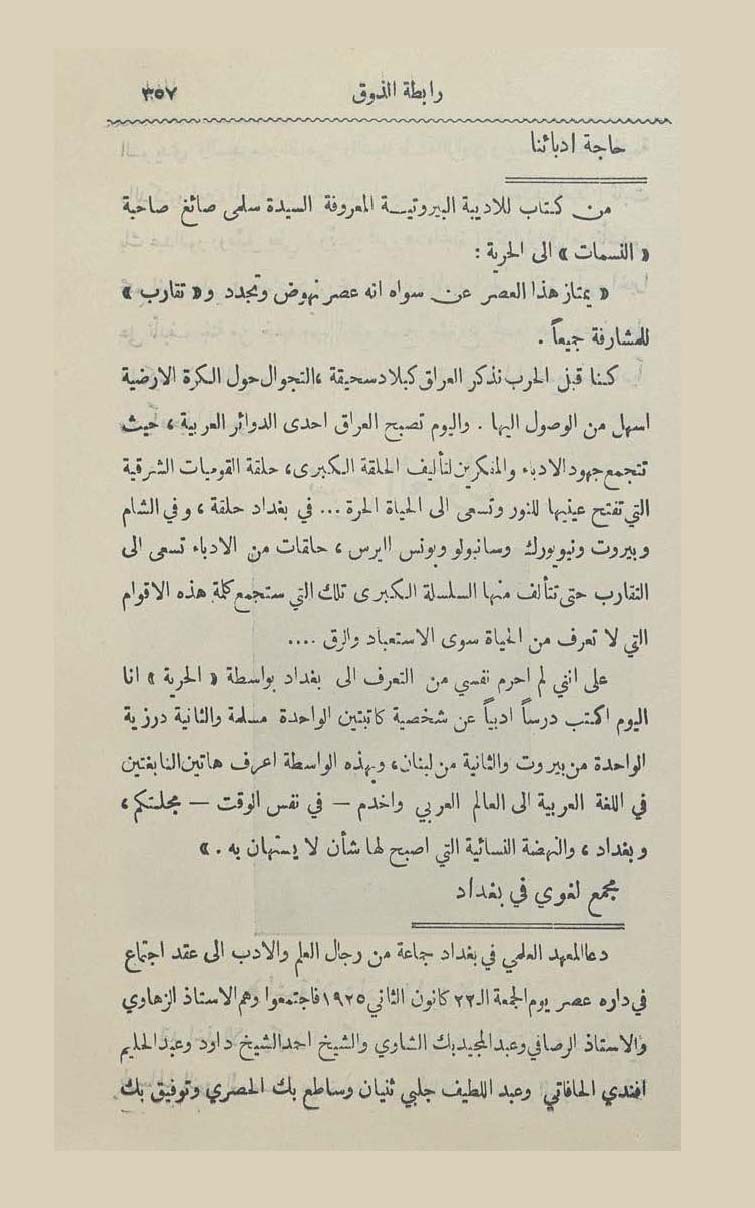 رابطة الذوق ٣٥٧
حاجة ادبائنا
من كتاب للاديبة البيروتية المعروفة السيدة سلمى صائغ صاحبة
« النسمات » الى الحرية :
« يمتاز هذا العصر عن سواه انه عصر نهوض وتجدد و« تقارب »
للمشارفة جميعاً .
كنا قبل الحرب نذكر العراق كبلاد سحيقة ، التجوال حول الكرة الارضية
اسهل من الوصول اليها . واليوم تصبح العراق احدى الدوائر العربية ، حيث
تتجمع جهود الادباء والمفكرين لتأليف الحلقة الكبرى، حلقة القوميات الشرقية
التي تفتح عينيها للنور وتسعى الى الحياة الحرة ... في بغداد حلقة ، وفي الشام
وبيروت ونيويورك وسانبولو وبونس ايرس ، حلقات من الادباء تسعى الى
التقارب حتى تتألف منها السلسلة الكبرى تلك التي ستجمع كلمة هذه الاقوام
التي لا تعرف من الحياة سوى الاستعباد والرق ....
على انني لم احرم نفسي من التعرف الى بغداد بواسطة « الحرية » انا
اليوم اكتب درساً ادبياً عن شخصية كاتبتين الواحدة مسلمة والثانية درزية
الواحدة من بيروت والثانية من لبنان، وبهذه الواسطة اعرف هاتين النابغتين
في اللغة العربية الى العالم العربي واخدم – في نفس الوقت – مجلتكم ،
وبغداد ، والنهضة النسائية التي اصبح لها شأن لا يستهان به . »
مجمع لغوي في بغداد
دعا المعهد العلمي في بغداد جماعة من رجال العلم والادب الى عقد اجتماع
في داره عصر يوم الجمعة الـ ٢٢ كانون الثاني ١٩٢٥ فاجتمعوا وهم الاستاذ الزهاوي
والاستاذ الرصافي وعبد المجيد بك الشاوي والشيخ احمد الشيخ داود وعبد الحليم
افندي الحافاتي وعبد اللطيف جلبي ثنيان وساطع بك الحصري وتوفيق بك